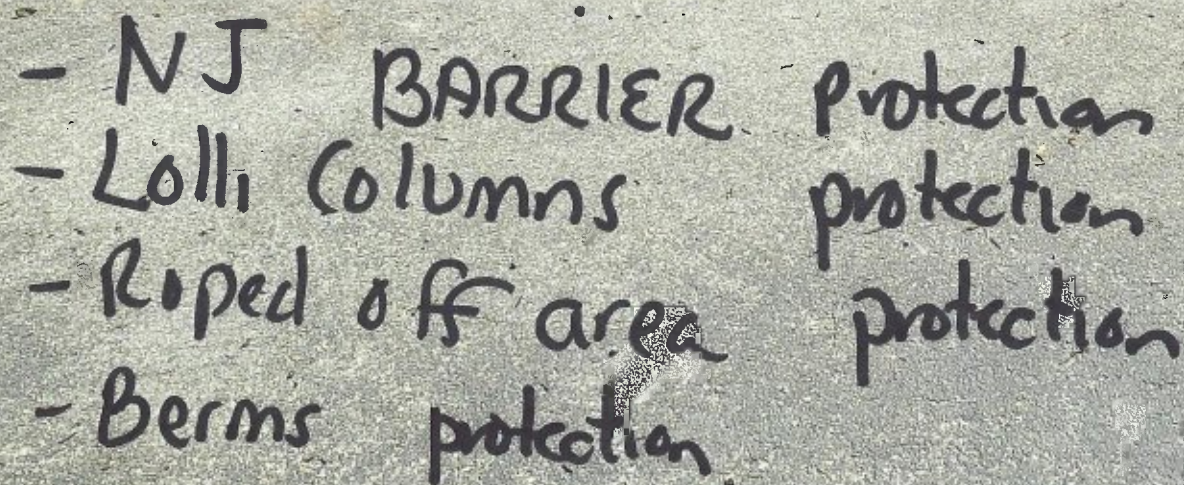 - NJ BARRIER protection
- Lolli Columns protection
- Roped off area protection
- Berms protection